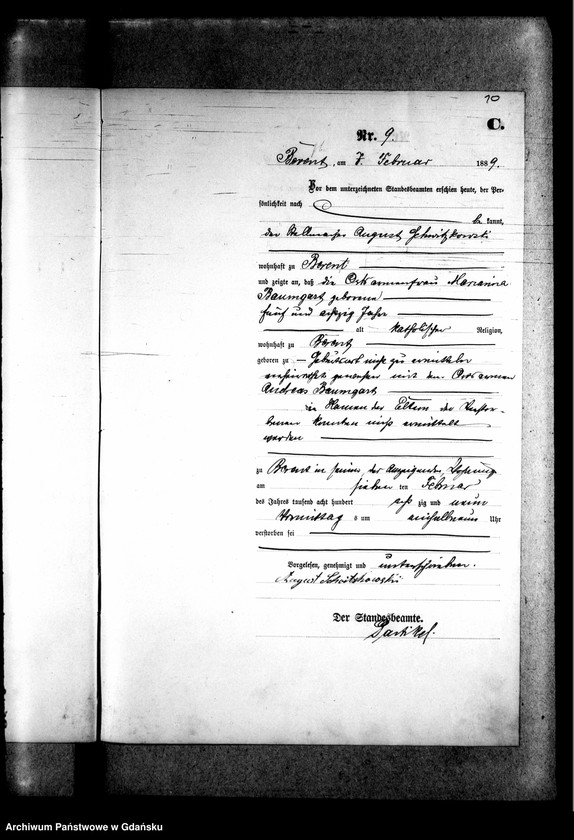 10
C.
Nr. 9.
Berent, am 7. Februar 1889.
Vor dem unterzeichneten Standesbeamten erschien heute, der Per-
sönlichkeit nach
be kannt,
der Stellmacher August Schwitzkowski
wohnhaft zu Berent
und zeigte an, daß die Ortsarmenfrau Marianna
Baumgart geborene
fünf und achtzig Jahre
alt katholischer Religion,
wohnhaft zu Berent
geboren zu Geburtsort nicht zu ermitteln
verheirathet gewesen mit dem Ortsarmen
Andreas Baumgart
die Namen der Eltern der Verstor-
benen konnten nicht ermittelt
werden
zu Berent in seiner, des Anzeigenden, Wohnung
am sieben ten Februar
des Jahres tausend acht hundert acht zig und neun
Vormittag s um Uhr
verstorben sei
Vorgelesen, genehmigt und unterschrieben.
August
Der Standesbeamte.
Archiwum Państwowe w Gdańsku